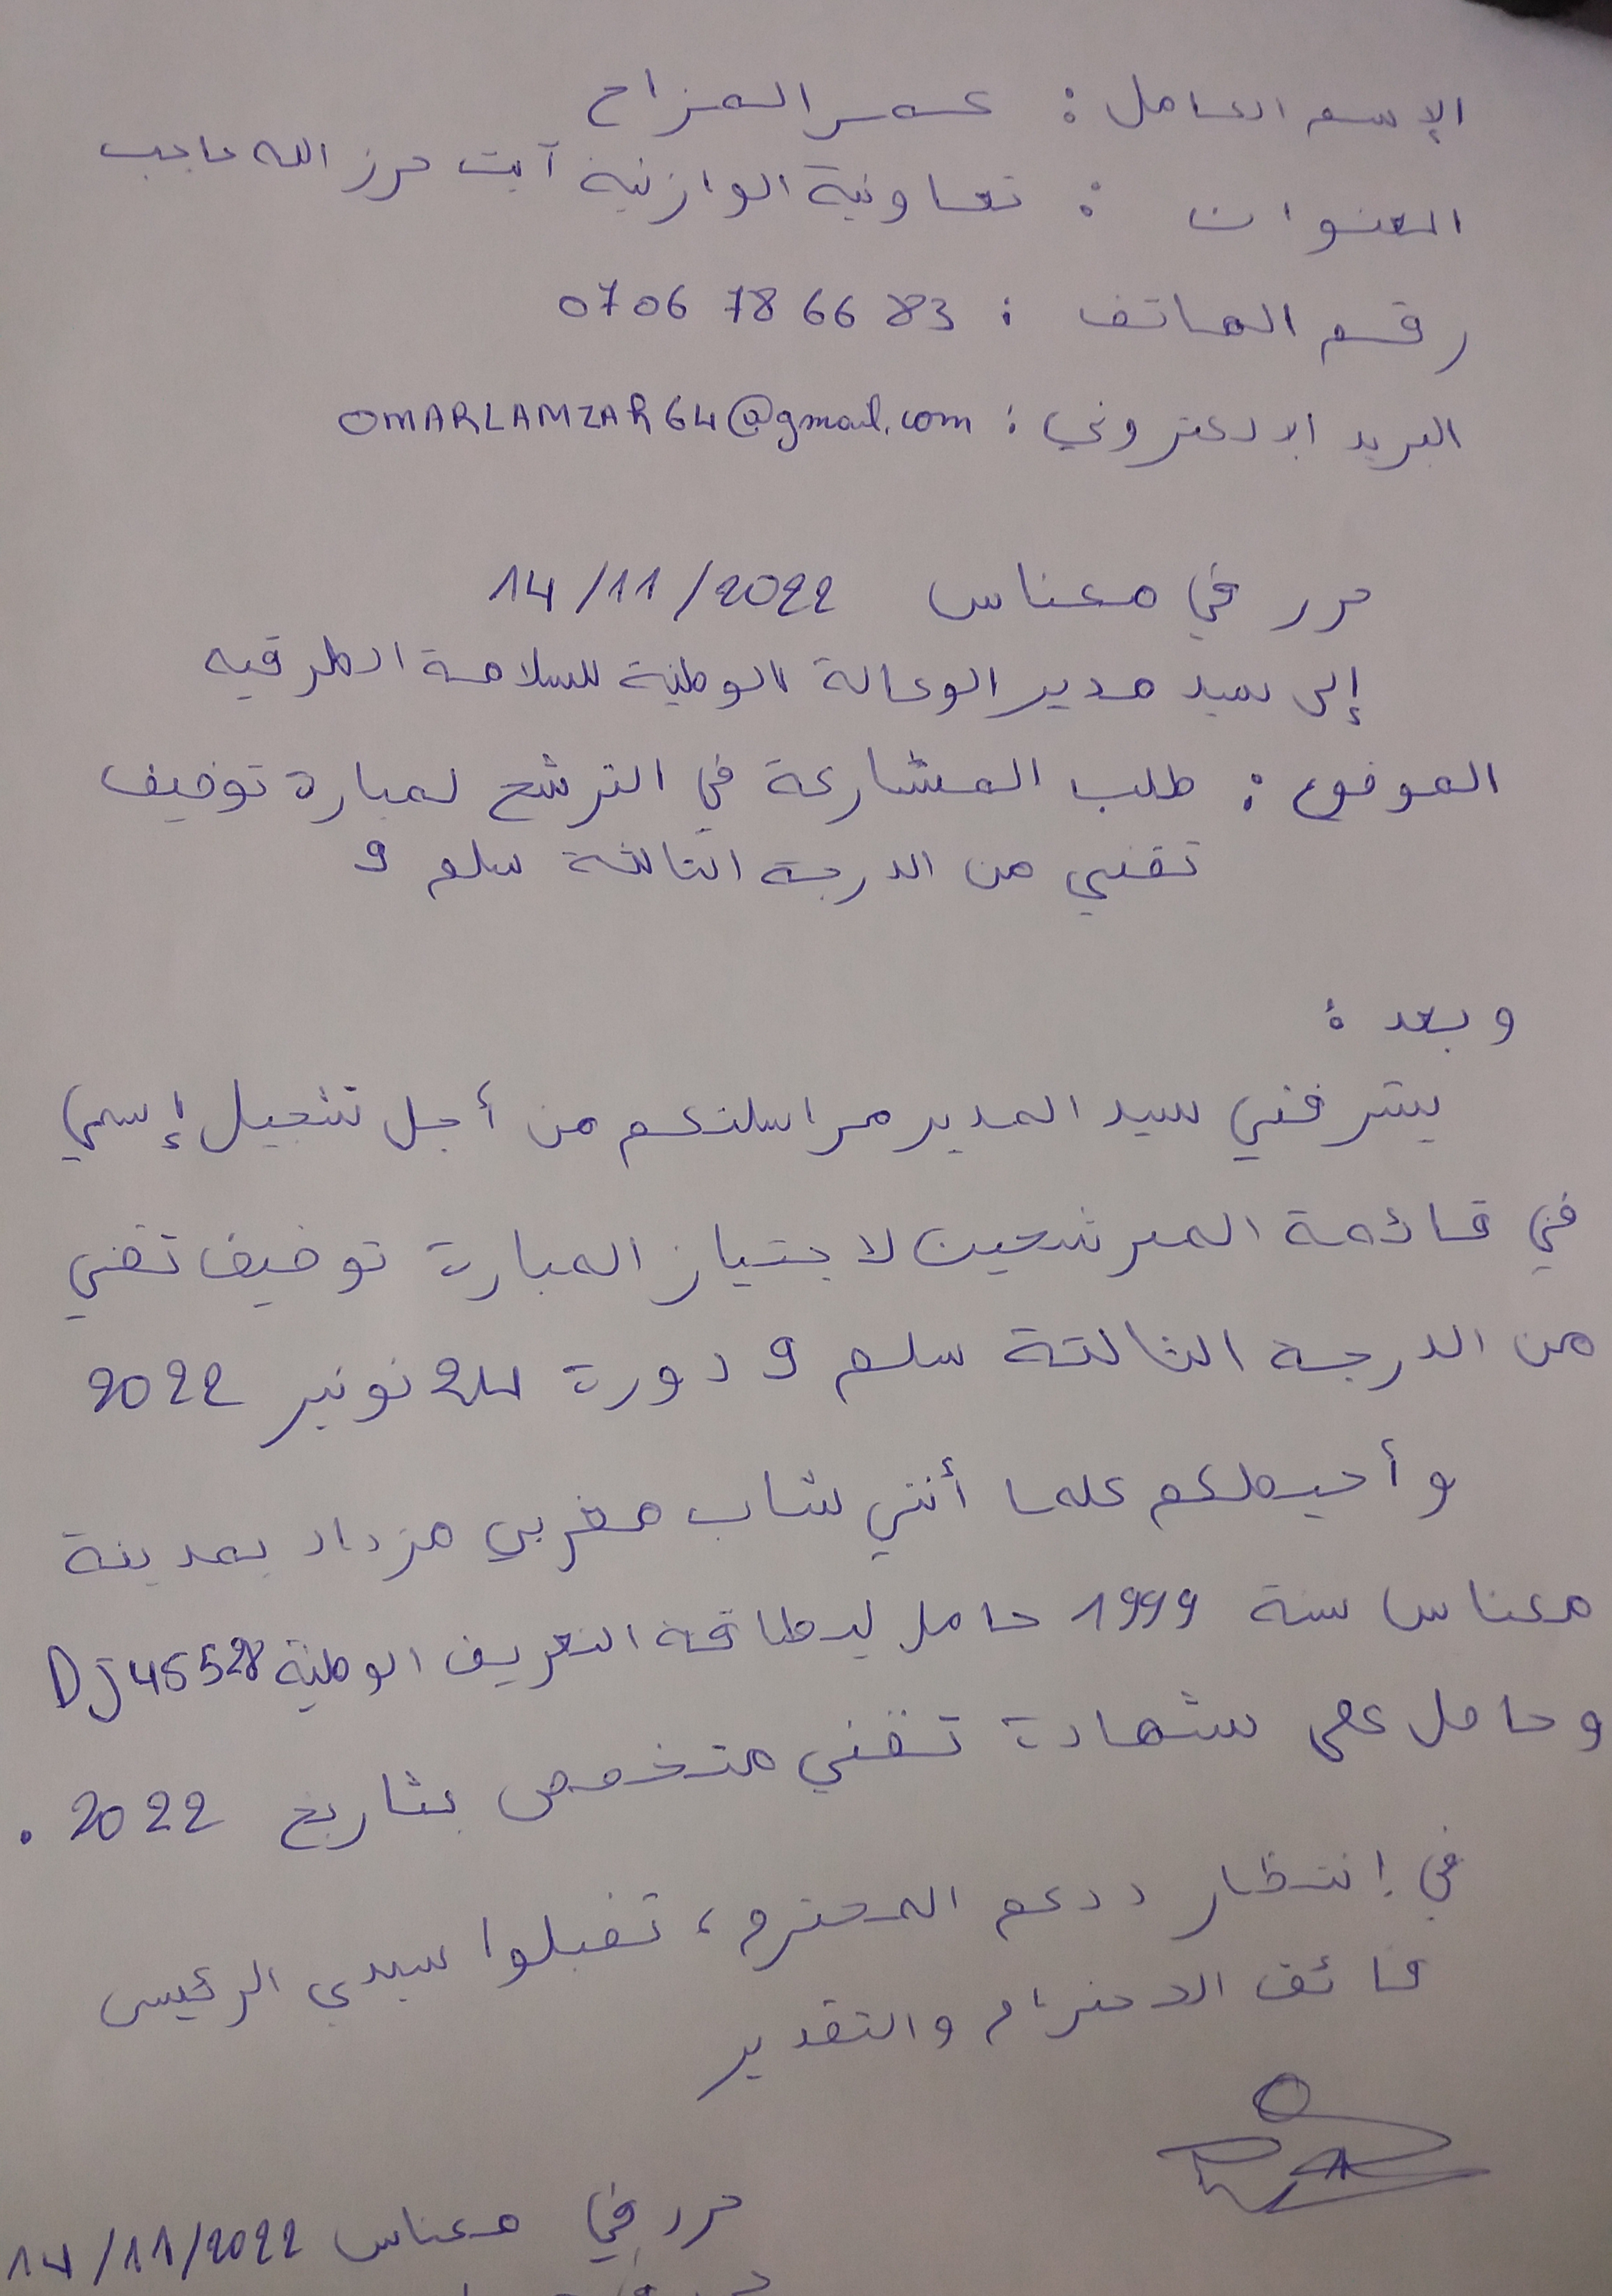 الإسم الكامل : عمر المزاح
العنوان : تعاونية الوازنية آيت حرز الله حاجب
رقم الهاتف : 0706 78 66 83
البريد الالكتروني : OMARLAMZAR64@gmail.com
حرر في مكناس 14/11/2022
إلى سيد مدير الوكالة الوطنية للسلامة الطرقيه
الموضوع : طلب المشاركة في الترشح لمبارة توضيف
تقني من الدرجة الثالثة سلم 9
وبعد :
يشرفني سيد المدير مراسلتكم من أجل تسجيل إسمي
في قائمة المرشحين لاجتياز المبارة توضيف تقني
من الدرجة الثالثة سلم 9 دورة 24 نونبر 2022
وأحيطكم علما أنني شاب مغربي مزداد بمدينة
مكناس سنة 1999 حامل لبطاقة التعريف الوطنية DJ45528
وحامل على شهادة تقني متخصص بتاريخ 2022 .
في إنتظار ردكم المحترم ، تقبلوا سيدي الرئيس
فائق الاحترام والتقدير
حرر في مكناس 14/11/2022